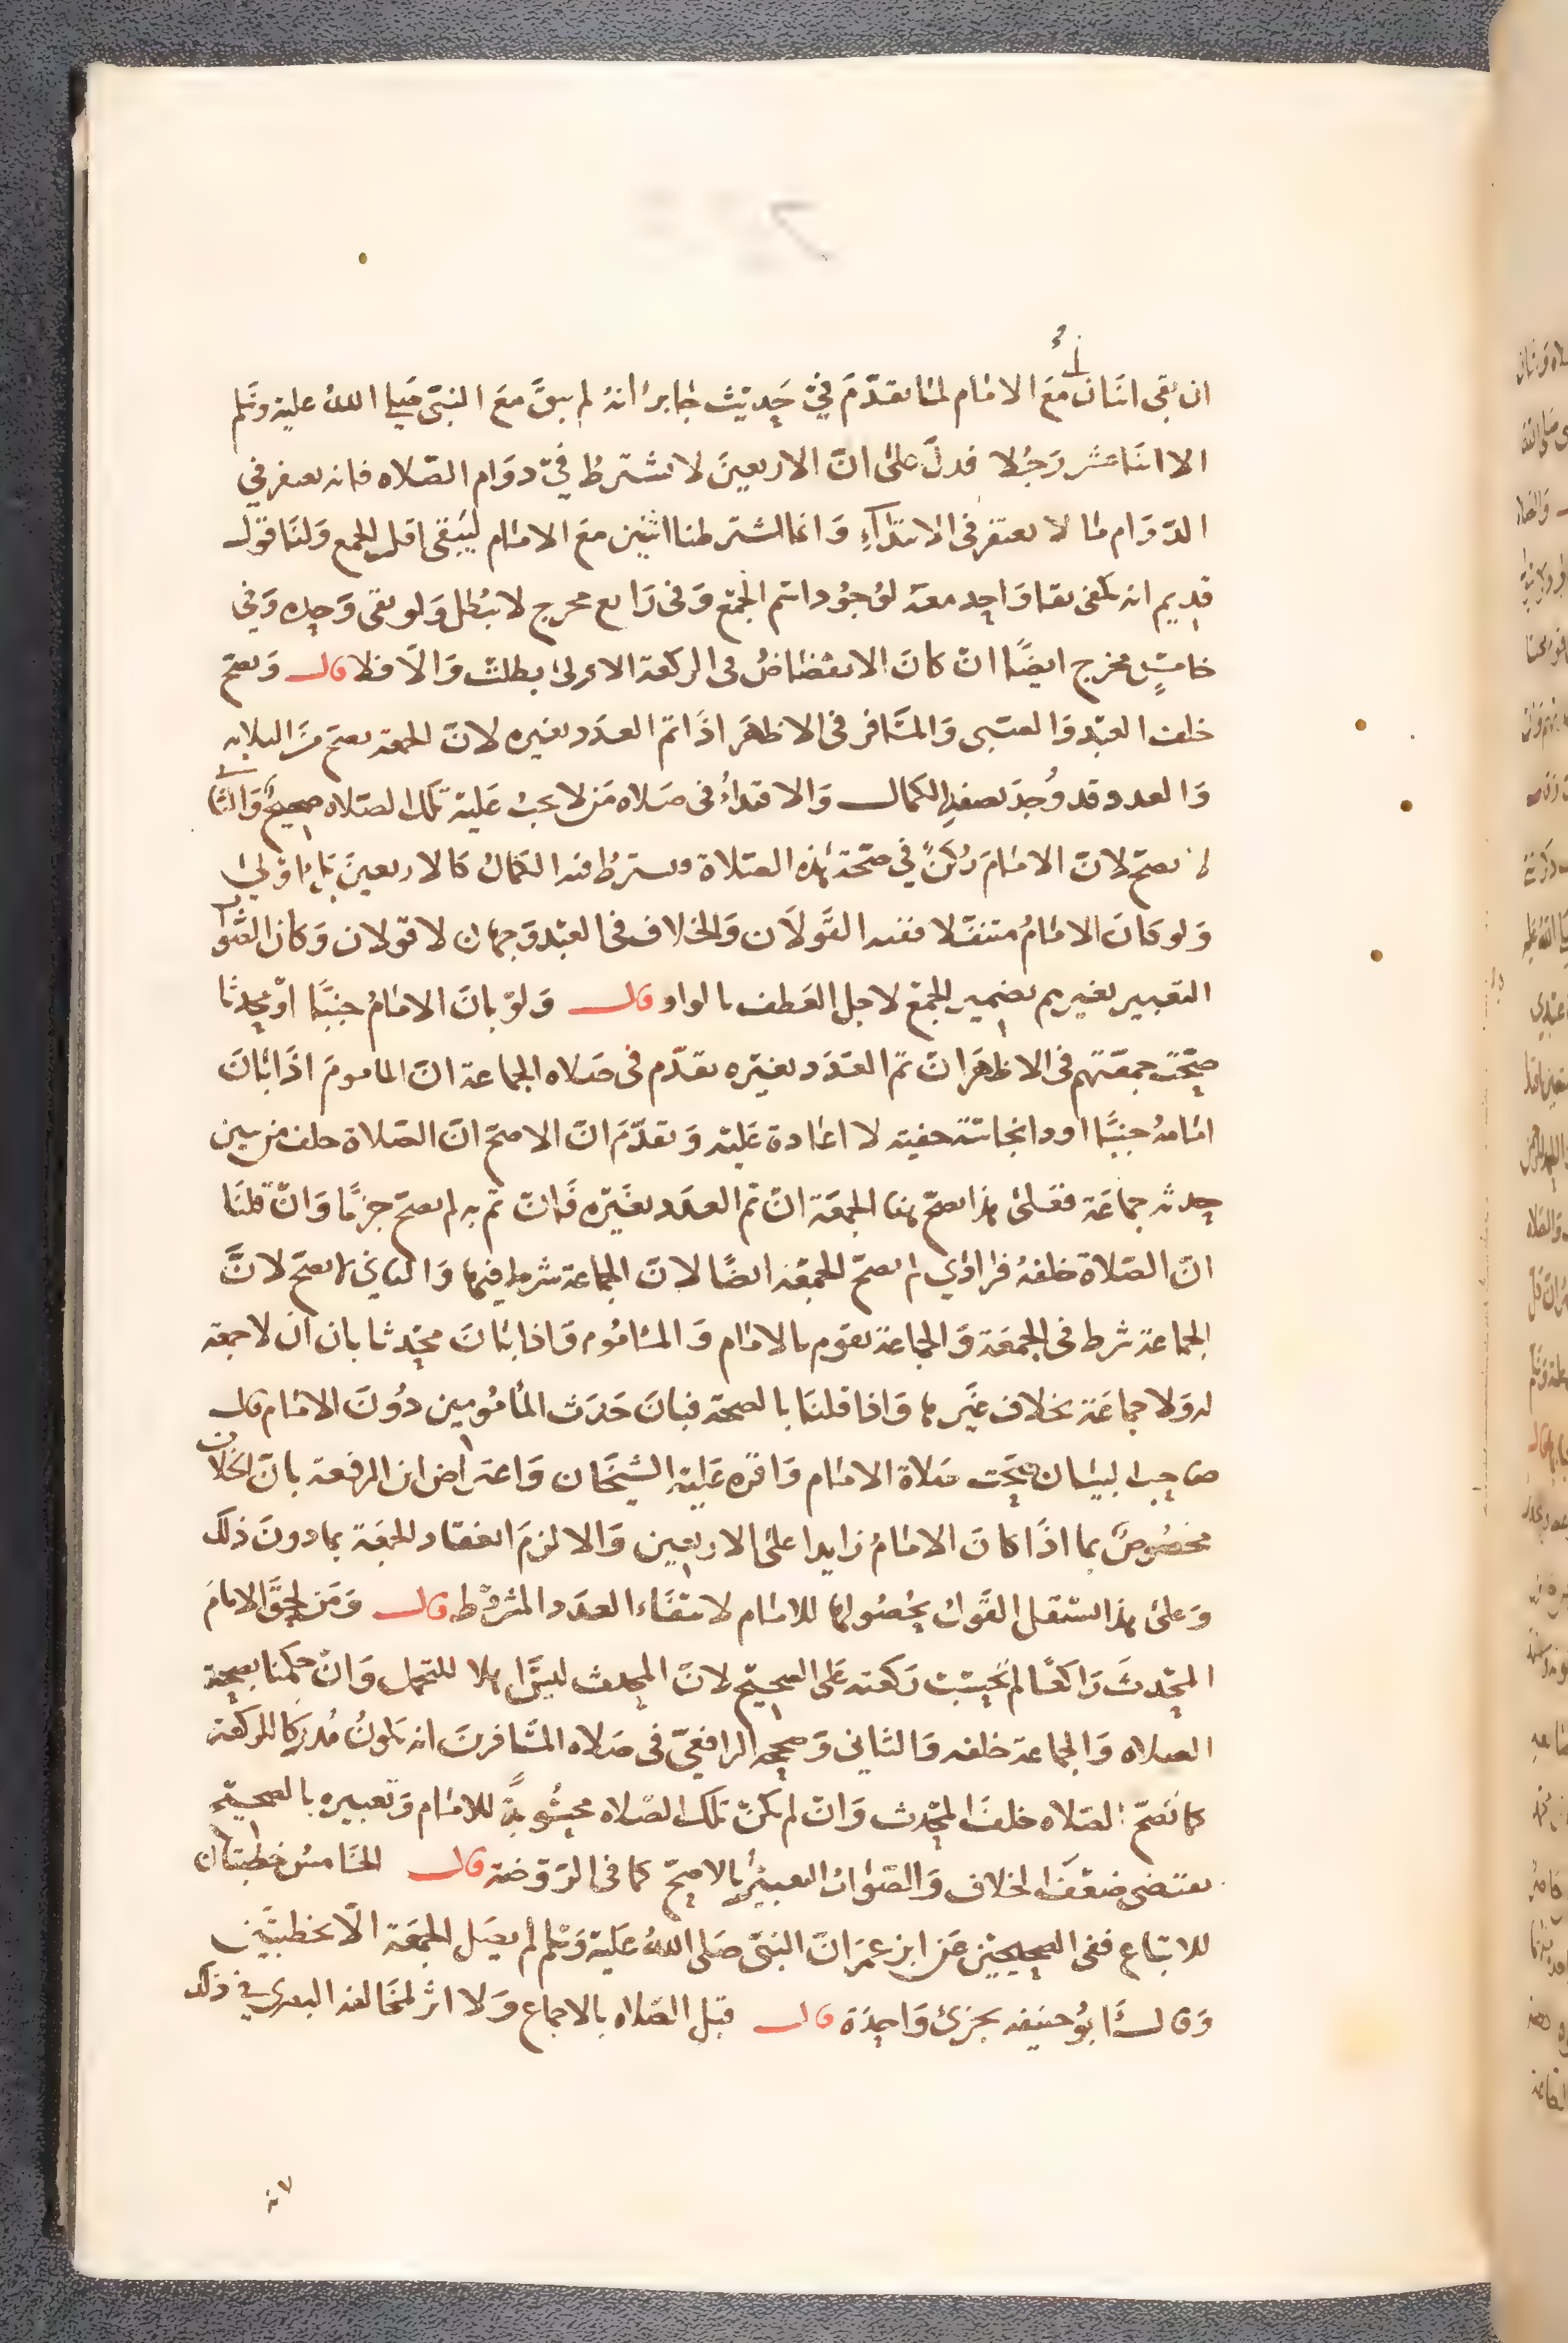 ان بقي اثنان مع الامام لما تقدم في حديث جابر انه لم يبق مع النبي صلى الله عليه وسلم
الا اثنا عشر رجلا فدل على ان الاربعين لا تشترط في دوام الصلاه فانه يغتفر في
الدوام ما لا يغتفر في الابتداء وانما اشترطنا اثنين مع الامام ليبقى اقل الجمع ولنا قول
قديم انه يكفي بقا واحد معه لوجود اسم الجمع وفي رابع مخرج لا تبطل ولو بقي وحده وفي
خامس مخرج ايضا ان كان الانفضاض في الركعة الاولى بطلت والا فلا قال وتصح
خلف العبد والصبي والمسافر في الاظهر اذا تم العدد بغيره لان الجمعة تصح من الثلاثه
والعدد قد وجد بصفه الكمال والاقتداء في صلاه من لا يجب عليه تلك الصلاه صحيح والثاني
لا تصح لان الامام ركن في صحة هذه الصلاة ويشترط فيه الكمال كالاربعين بل اولى
ولو كان الامام متنفلا ففيه القولان والخلاف في العبد وجهان لا قولان وكان الصواب
التعبير بغيرهم بضمير الجمع لاجل العطف بالواو قال ولو بان الامام جنبا او محدثا
صحت جمعتهم في الاظهر ان تم العدد بغيره تقدم في صلاه الجماعة ان الماموم اذا بان
امامه جنبا او ذا نجاسة خفية لا اعادة عليه وتقدم ان الاصح ان الصلاة خلف من تبين
حدثه جماعة فعلى هذا تصح هنا الجمعة ان تم العدد بغيره فان تم به لم تصح جزما وان قلنا
ان الصلاة خلفه فرادى لم تصح الجمعة ايضا لان الجماعة شرط فيها والثاني لا تصح لان
الجماعة شرط في الجمعة والجماعة تقوم بالامام والماموم فاذا بان محدثا بان ان لا جمعة
له ولا جماعة بخلاف غيرها واذا قلنا بالصحة فبان حدث المأمومين دون الامام قال
صاحب البيان صحت صلاة الامام واقره عليه الشيخان واعترض ابن الرفعة بان الخلاف
مخصوص بما اذا كان الامام زايدا على الاربعين والا لزم انعقاد الجمعة بما دون ذلك
وعلى هذا استشكل القول بحصولها للامام لانتفاء العدد المشروط قال ومن لحق الامام
المحدث راكعا لم تحسب ركعته على الصحيح لان المحدث ليس اهلا للتحمل وان حكمنا بصحة
الصلاه والجماعة خلفه والثاني وصححه الرافعي في صلاه المسافرين انه يكون مدركا للركعة
كما تصح الصلاه خلف المحدث وان لم تكن تلك الصلاه محسوبة للامام وتعبيره بالصحيح
يقتضي ضعف الخلاف والصواب التعبير بالاصح كما في الروضة قال الخامس خطبتان
للاتباع ففي الصحيحين عن ابن عمر ان النبي صلى الله عليه وسلم لم يصل الجمعة الا بخطبتين
وقال ابو حنيفه يجزئ واحدة قال قبل الصلاه بالاجماع ولا اثر لمخالفه البصري في ذلك